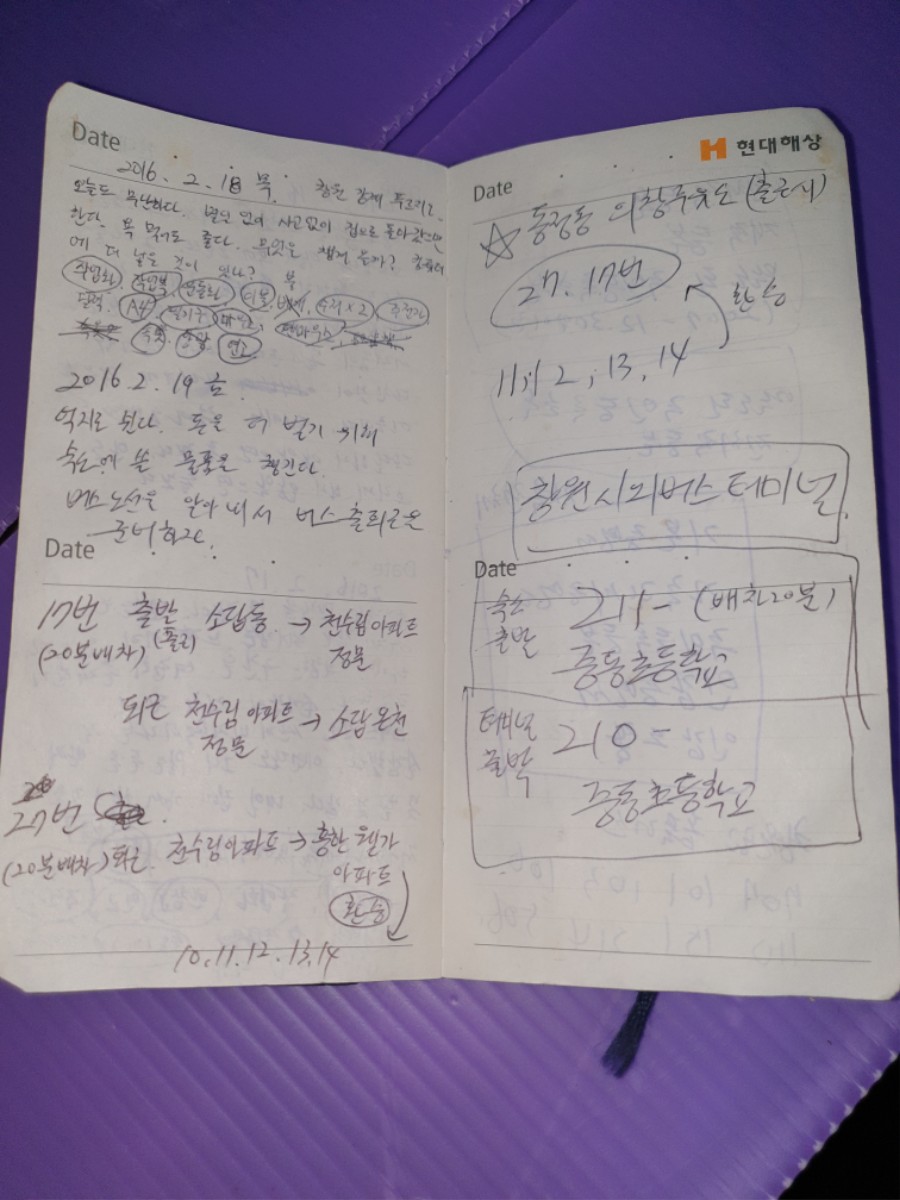 Date
2016. 2. 18 목. 창원
오늘도 무난하다. 별일 없이 사고없이 집으로 돌아갔으면
한다. 못 먹어도 좋다. 무엇을
에 더 넣을 것이 있나?
작업화, 작업복, 이불, 베개, 수저×2
달력, A4, 필기구
속옷, 양말
2016. 2. 19 금.
억지로 쉰다. 돈을 더 벌기 위해
숙소에 쓸 물품을 챙긴다.
버스 노선을 알아내서 버스 출퇴근을
준비하자.
Date
17번 출발 소답동 → 천수림아파트
(20분배차) 정문
퇴근 천수림아파트 → 소답온천
정문
27번
(20분배차) 퇴근. 천수림아파트 → 홍한웰가
아파트
환승
10.11.12.13.14
현대해상
Date
☆ 동정동 의창주유소 (출근시)
27. 17번
환승
11, 12, 13, 14
창원시외버스테미널.
Date
숙소 211- (배차20분)
출발 중동초등학교
테미널 210-
출발 중동초등학교